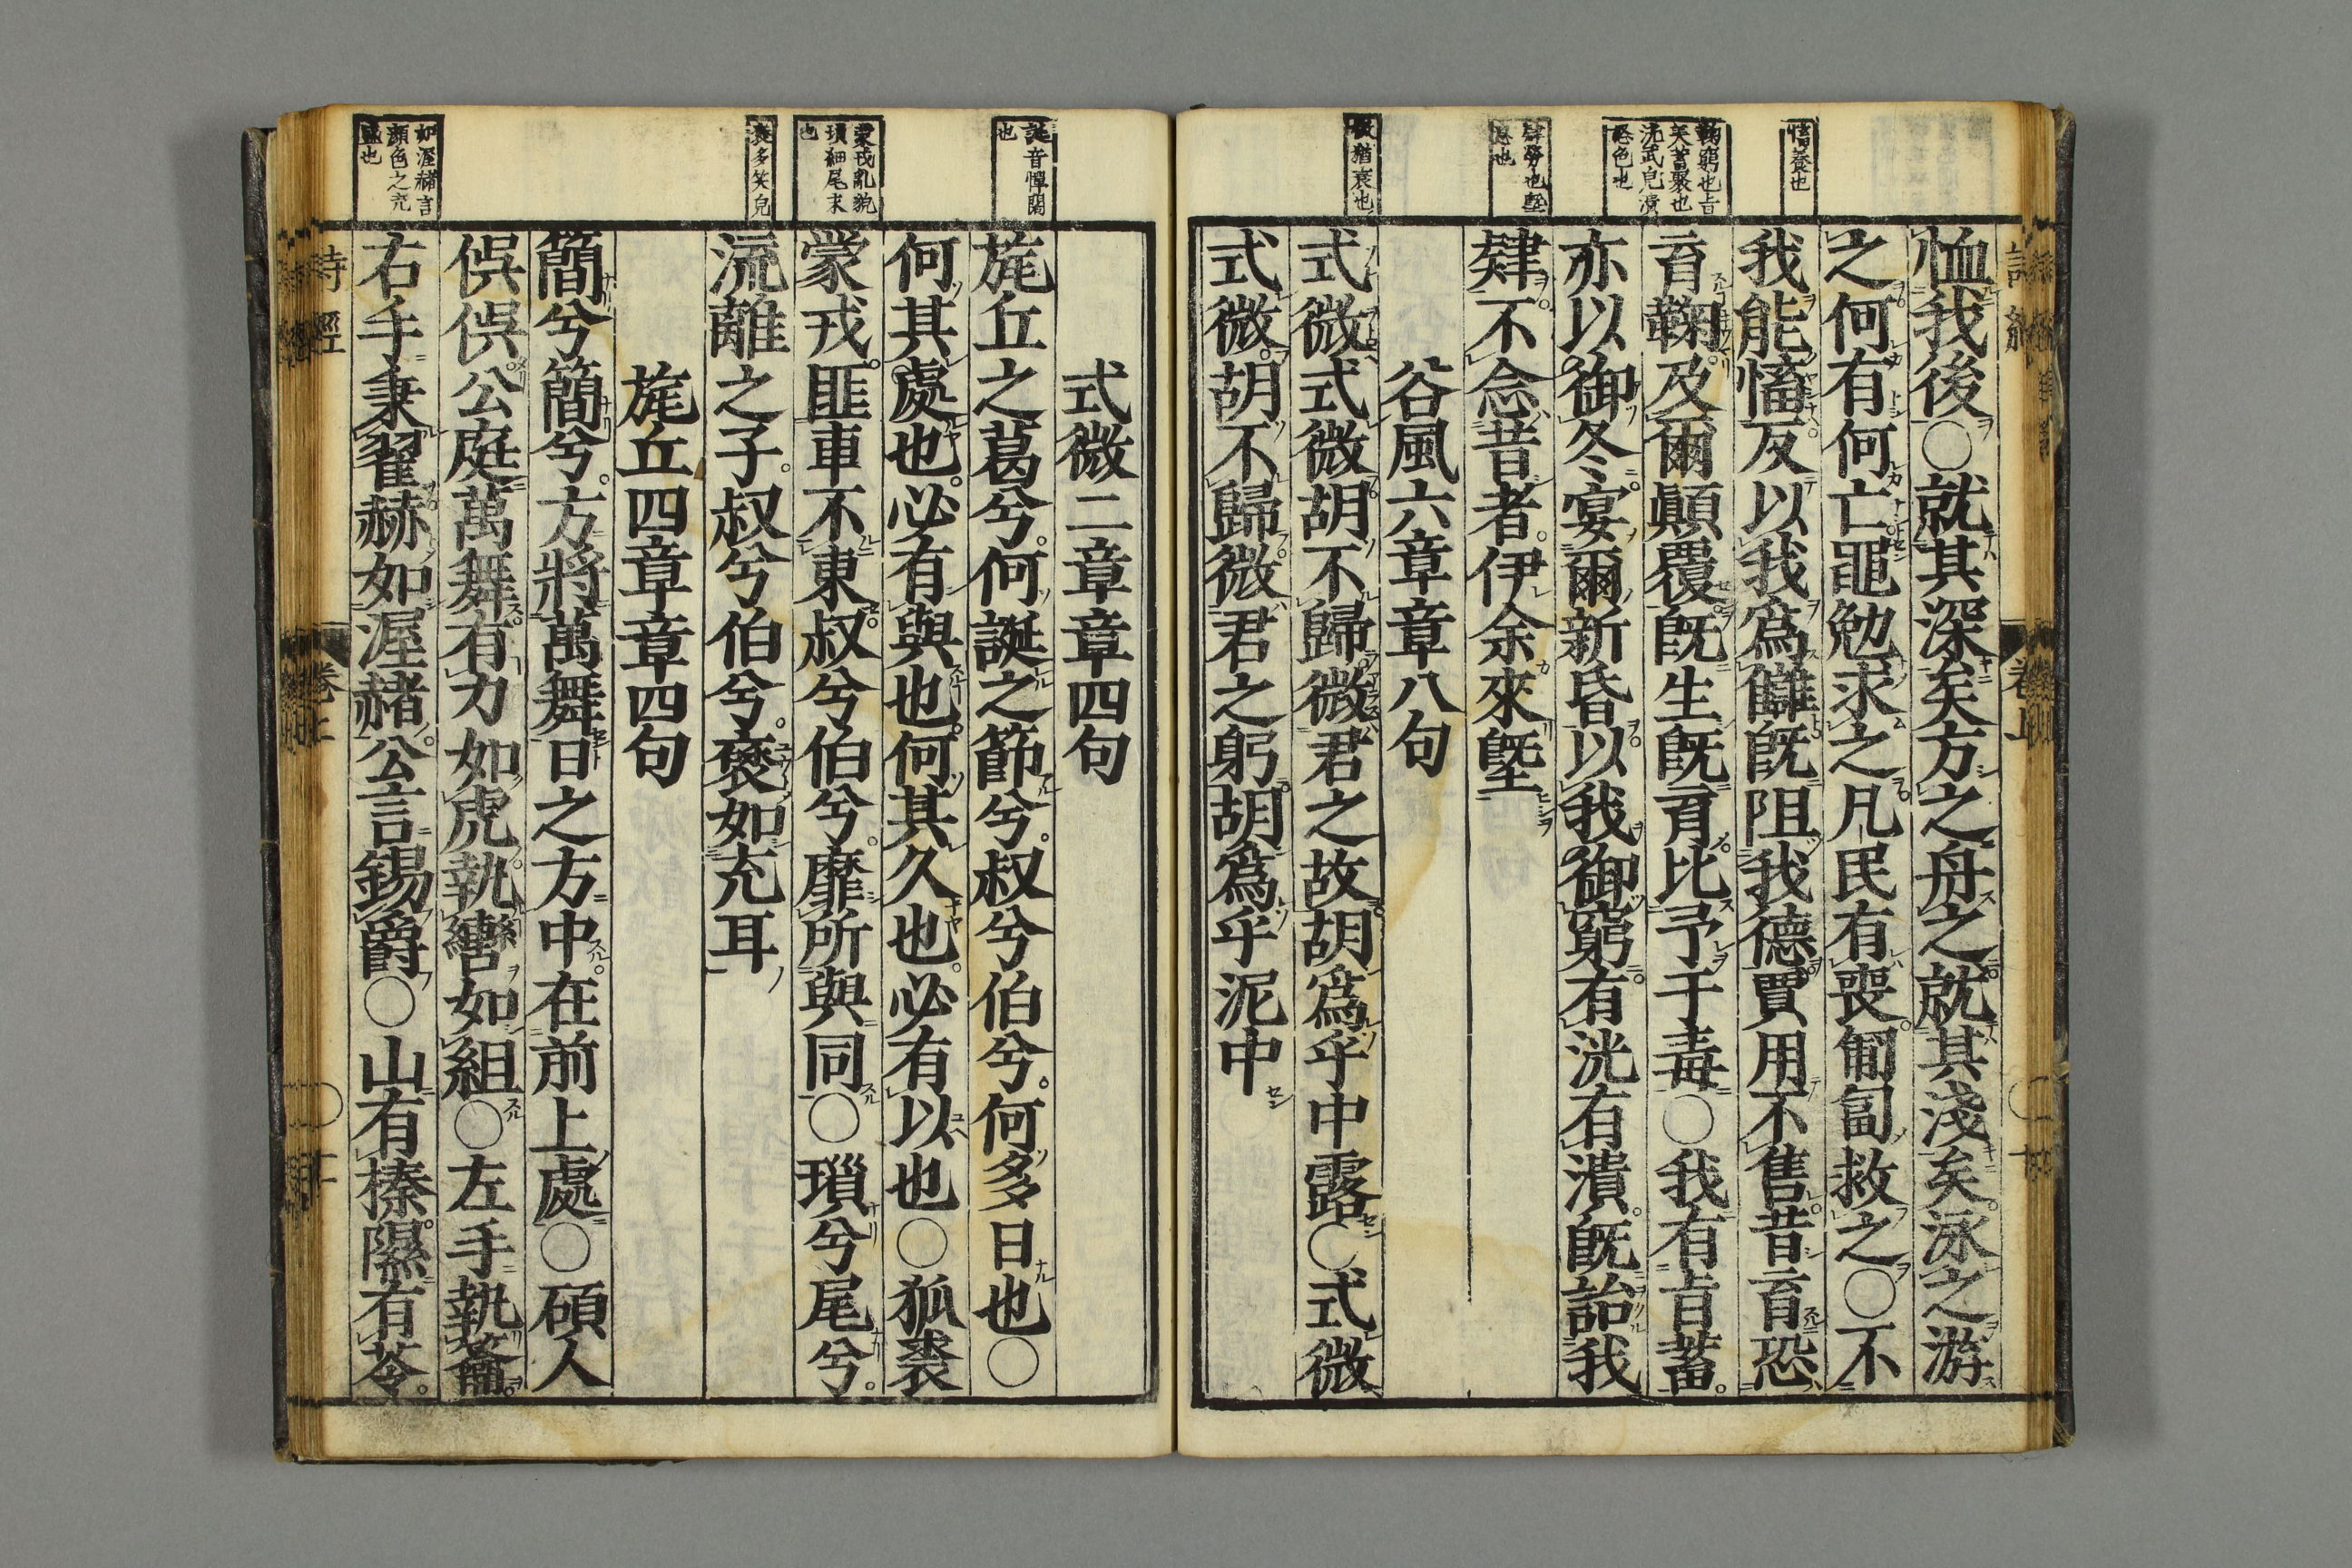 慉養也
鞫窮也旨
美蓄聚也
洸武皃潰
怒色也
肄勞也墍
息也
微猶衰也
恤我後○就其深矣方之舟之就其淺矣泳之游
之何有何亡黽勉求之凡民有喪匍匐救之○不
我能慉反以我爲讎既阻我德賈用不售昔育恐
育鞫及爾顛覆既生既育比予于毒○我有旨蓄
亦以御冬宴爾新昏以我御窮有洸有潰既詒我
肄不念昔者伊余來墍
谷風六章章八句
式微式微胡不歸微君之故胡爲乎中露○式微
式微胡不歸微君之躬胡爲乎泥中
誕音憚闊
也
蒙戎亂貌
瑣細尾末
也
褎多笑皃
如渥赭言
顔色之充
盛也
式微二章章四句
旄丘之葛兮何誕之節兮叔兮伯兮何多日也○
何其處也必有與也何其久也必有以也○狐裘
蒙戎匪車不東叔兮伯兮靡所與同○瑣兮尾兮
流離之子叔兮伯兮褎如充耳
旄丘四章章四句
簡兮簡兮方將萬舞日之方中在前上處○碩人
俁俁公庭萬舞有力如虎執轡如組○左手執籥
右手秉翟赫如渥赭公言錫爵○山有榛隰有苓
詩經
卷上